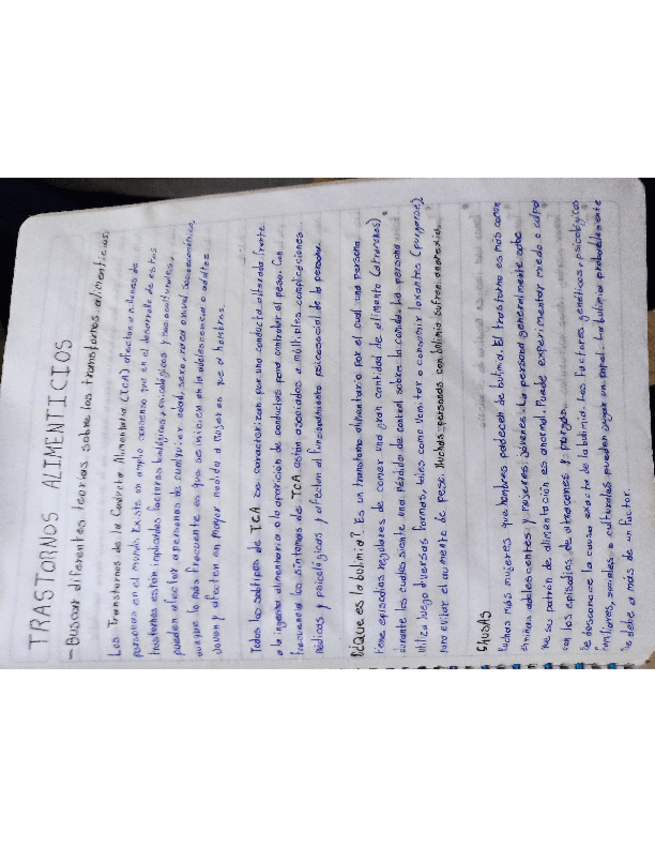 TRASTORNOS ALIMENTICIOS
- Buscar diferentes teorias sobre los transtornos alimenticios.
Los Transtornos de la Conducta Alimentaria (TCA) afectan a millones de
personas en el mundo. Existe un amplio consenso que en el desarrollo de estos
trastornos están implicados factores biológicos, psicológicos y socioculturales.
pueden afectar a personas de cualquier edad, sexo, raza o nivel socioeconómico,
aunque lo más frecuente es que se inicien en la adolescencia o adultez
Joven y afecten en mayor medida a mujeres que a hombres
Todos los subtipos de TCA se caracterizan por una conducta alterada frente
a la ingesta alimentaria o la aparición de conductas para controlar el peso. Con
frecuencia los síntomas de TCA están asociados a múltiples complicaciones
médicas y psicológicas y afectan al funcionamiento psicosocial de la persona.
que es la bulimia? Es un transtorno alimentario por el cual una persona
tiene episodios regulares de comer una gran cantidad de alimento (atracones)
durante los cuales siente una pérdida de control sobre la comida. La persona
utiliza luego diversas formas, tales como vomitar o consumir laxantes (purgarse)
para evitar el aumento de peso. Muchas personas con bulimia sufren anorexia.
CAUSAS
Muchas más mujeres que hombres padecen de bulimia. El trastorno es más común
en niñas adolescentes y mujeres jóvenes. La persona generalmente sabe
que su patrón de alimentación es anormal. Puede experimentar miedo o culpa
con los episodios de atracones y purgas.
Se desconoce la causa exacta de la bulimia. Los factores genéticos, psicológicos
familiares, sociales o culturales pueden jugar un papel. La bulimia probablemente
se debe a más de un factor.